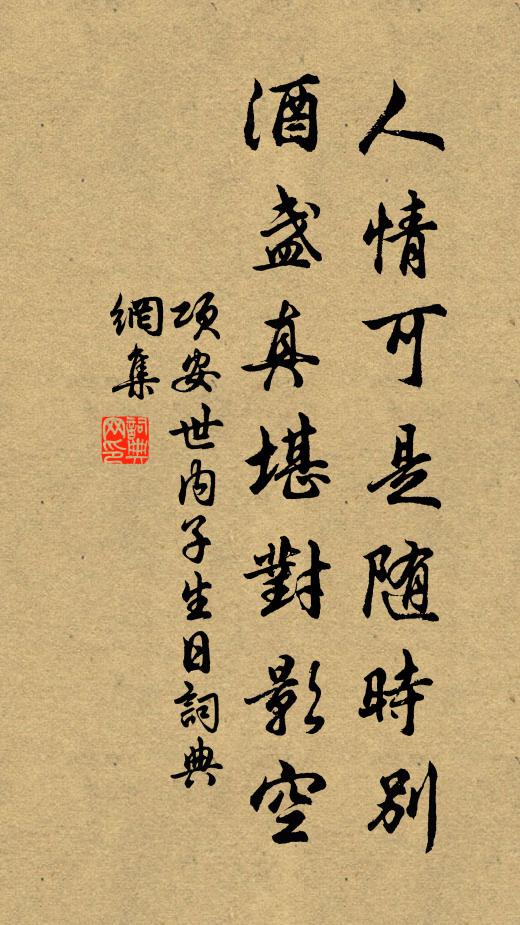 人情可是随時別
酒盞真堪對影空
項安世内子生日詞典
網集
詞典
网印